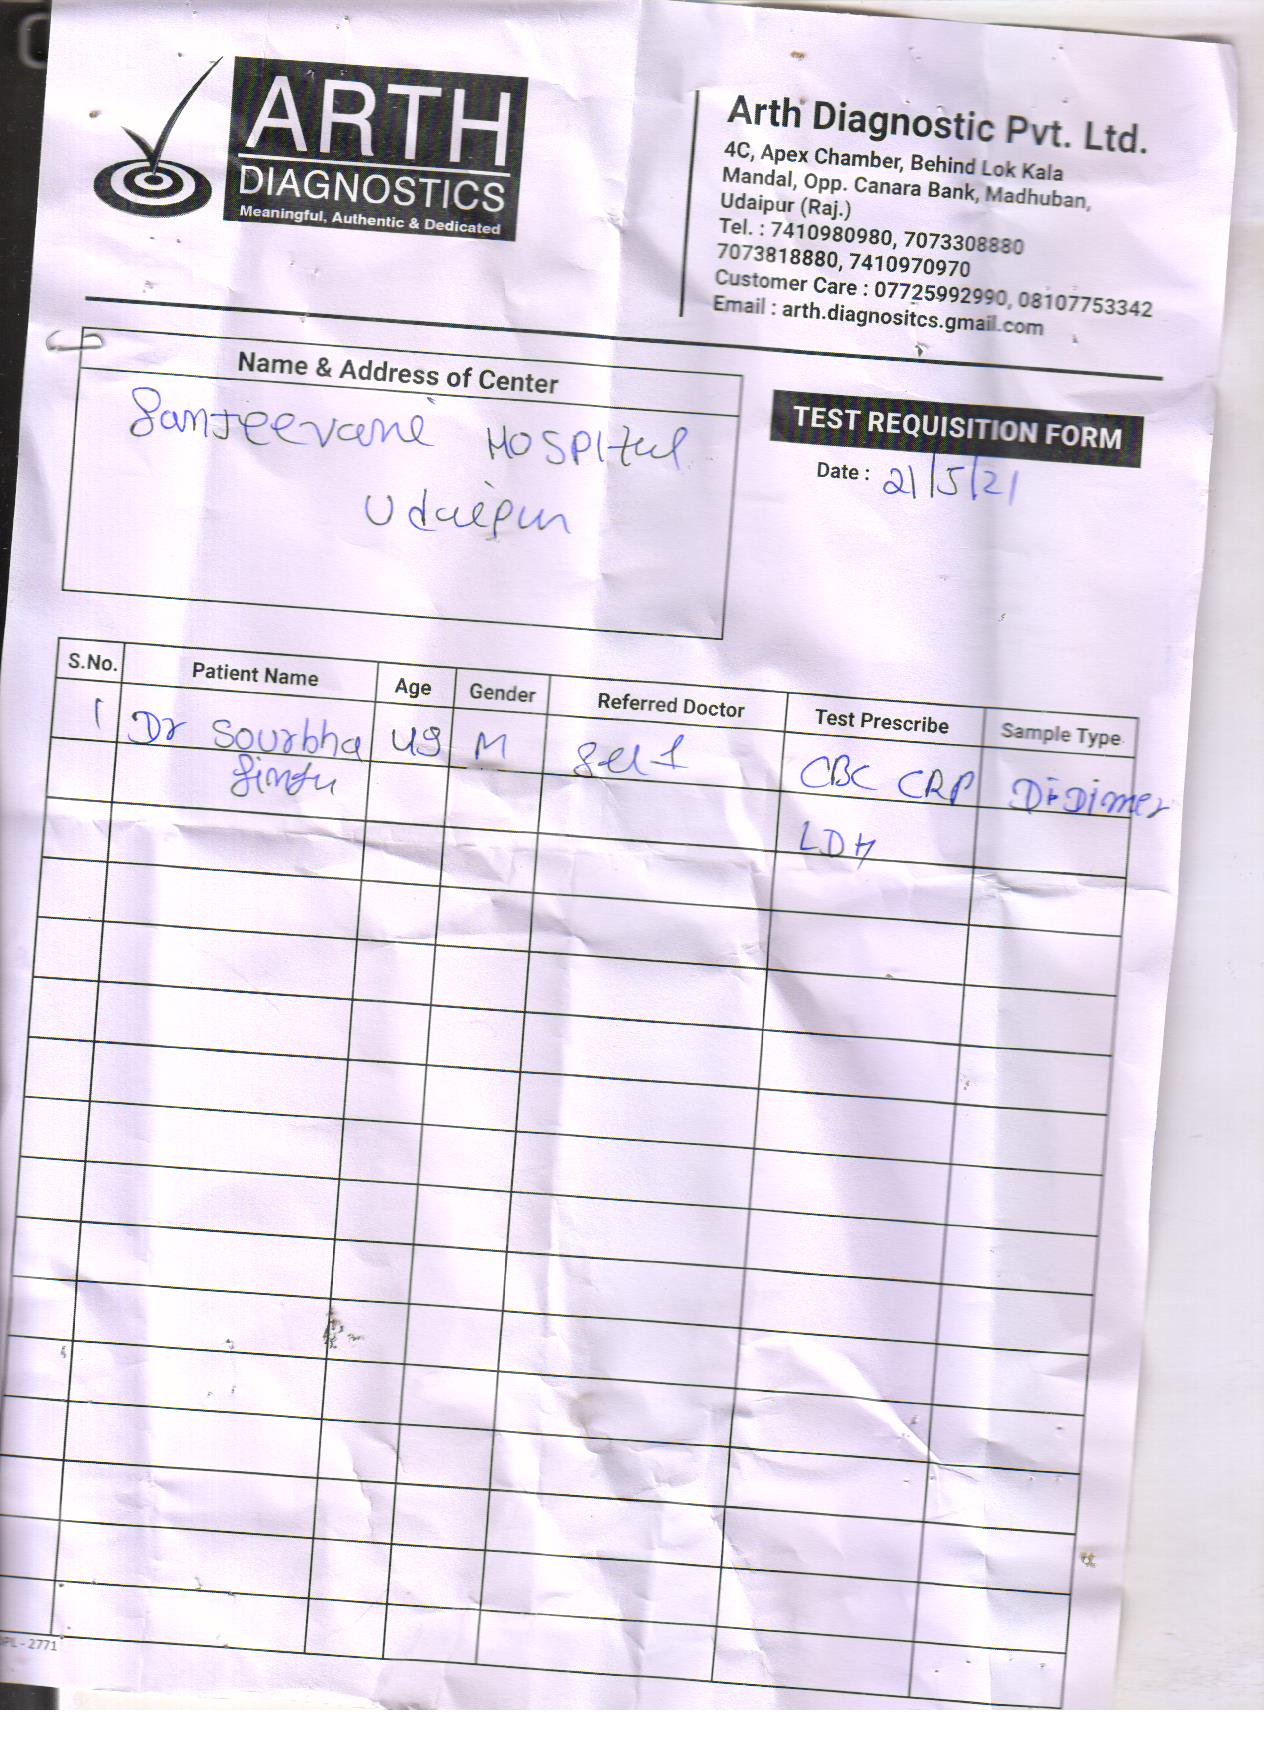 ARTH
DIAGNOSTICS
Meaningful, Authentic & Dedicated
Arth Diagnostic Pvt. Ltd.
4C, Apex Chamber, Behind Lok Kala
Mandal, Opp. Canara Bank, Madhuban,
Udaipur (Raj.)
Tel. : 7410980980, 7073308880
7073818880, 7410970970
Customer Care : 07725992990, 08107753342
Email : arth.diagnositcs.gmail.com
Name & Address of Center
Sanjeevani HOSPItal
Udaipur
TEST REQUISITION FORM
Date : 21/5/21
S.No. Patient Name Age Gender Referred Doctor Test Prescribe Sample Type
1 Dr Sourbha M Self CBC CRP DiDimer
LDH
PL - 2771